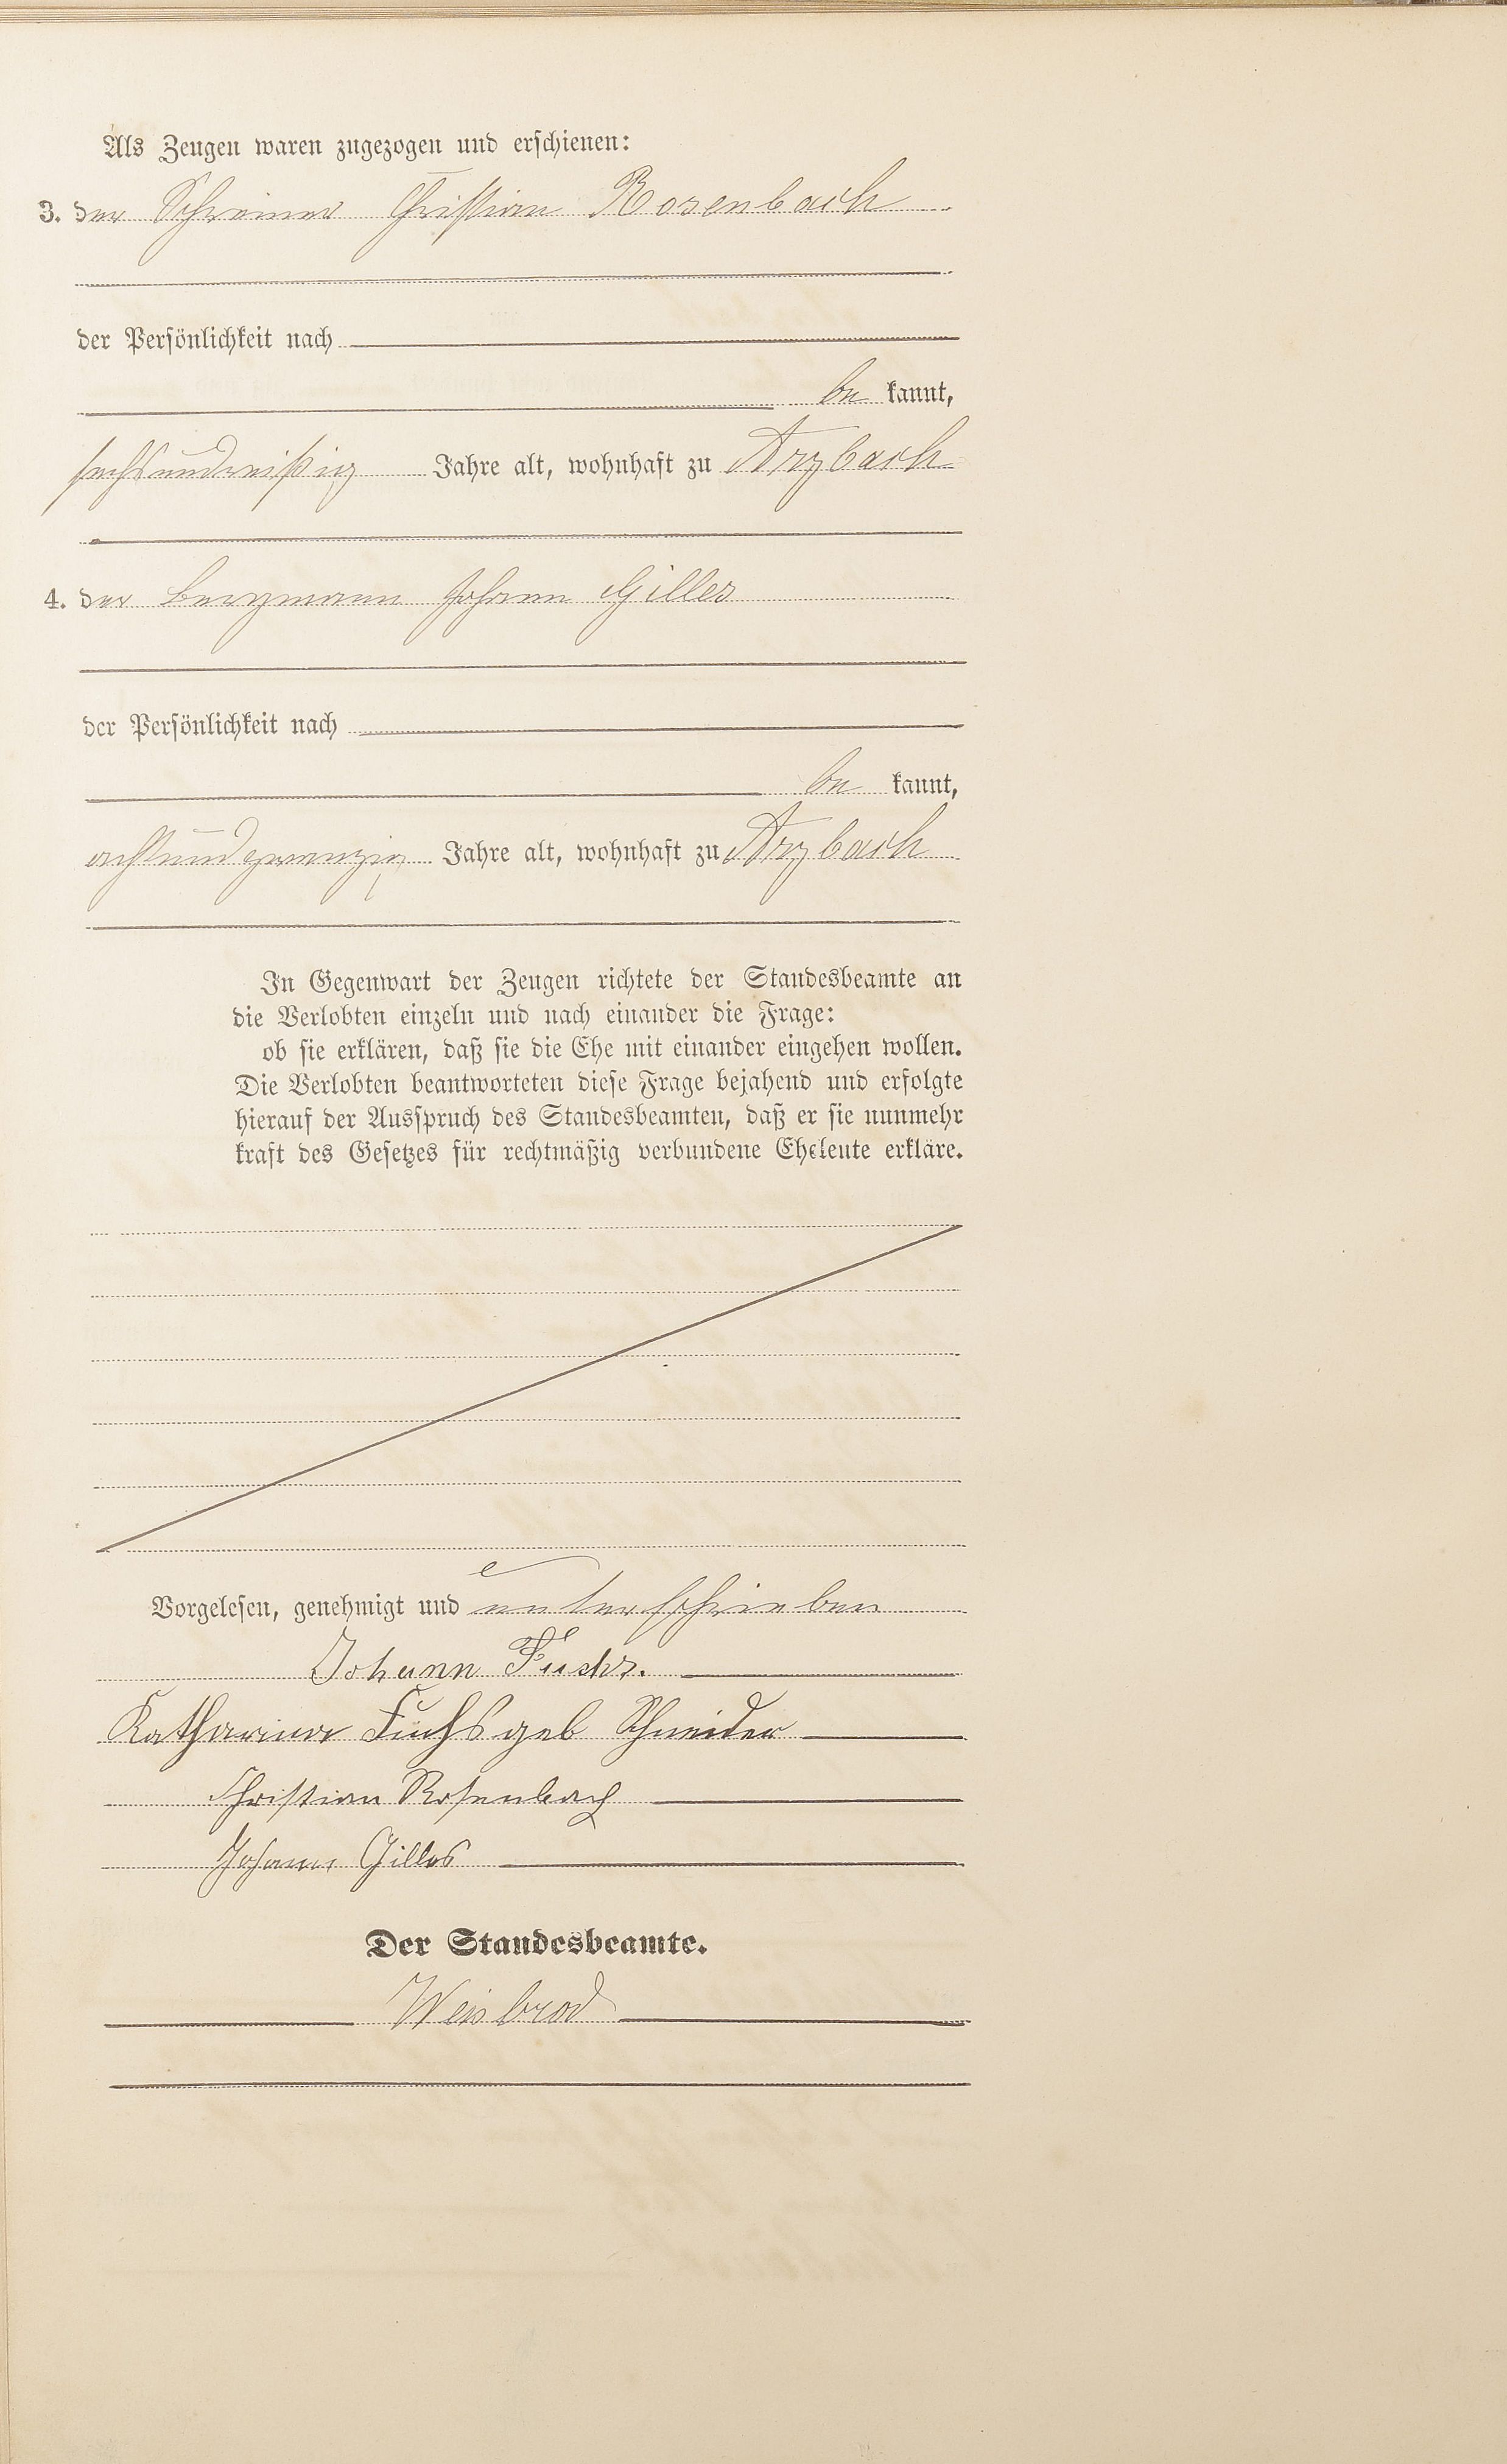 Als Zeugen waren zugezogen und erschienen:
3. der Schreiner Christian Rosenbach
der Persönlichkeit nach
be kannt,
sechsunddreißig Jahre alt, wohnhaft zu Arzbach
4. der Bergmann Johann Gilles
der Persönlichkeit nach
be kannt,
achtundzwanzig Jahre alt, wohnhaft zu Arzbach
In Gegenwart der Zeugen richtete der Standesbeamte an
die Verlobten einzeln und nach einander die Frage:
ob sie erklären, daß sie die Ehe mit einander eingehen wollen.
Die Verlobten beantworteten diese Frage bejahend und erfolgte
hierauf der Ausspruch des Standesbeamten, daß er sie nunmehr
kraft des Gesetzes für rechtmäßig verbundene Eheleute erkläre.
Vorgelesen, genehmigt und unterschrieben
Johann Fuchs.
Katharina Fuchs geb Schneider
Christian Rosenbach
Johann Gilles
Der Standesbeamte.
Weisbrod